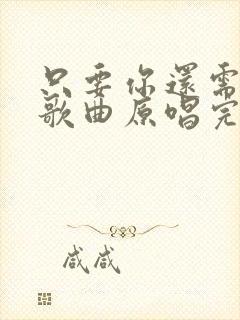 只要你還需
歌曲原唱完
咸咸